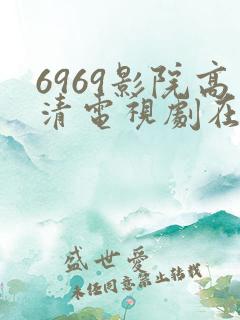 6969影院高
清電視劇在
盛世愛
未經同意禁止轉載